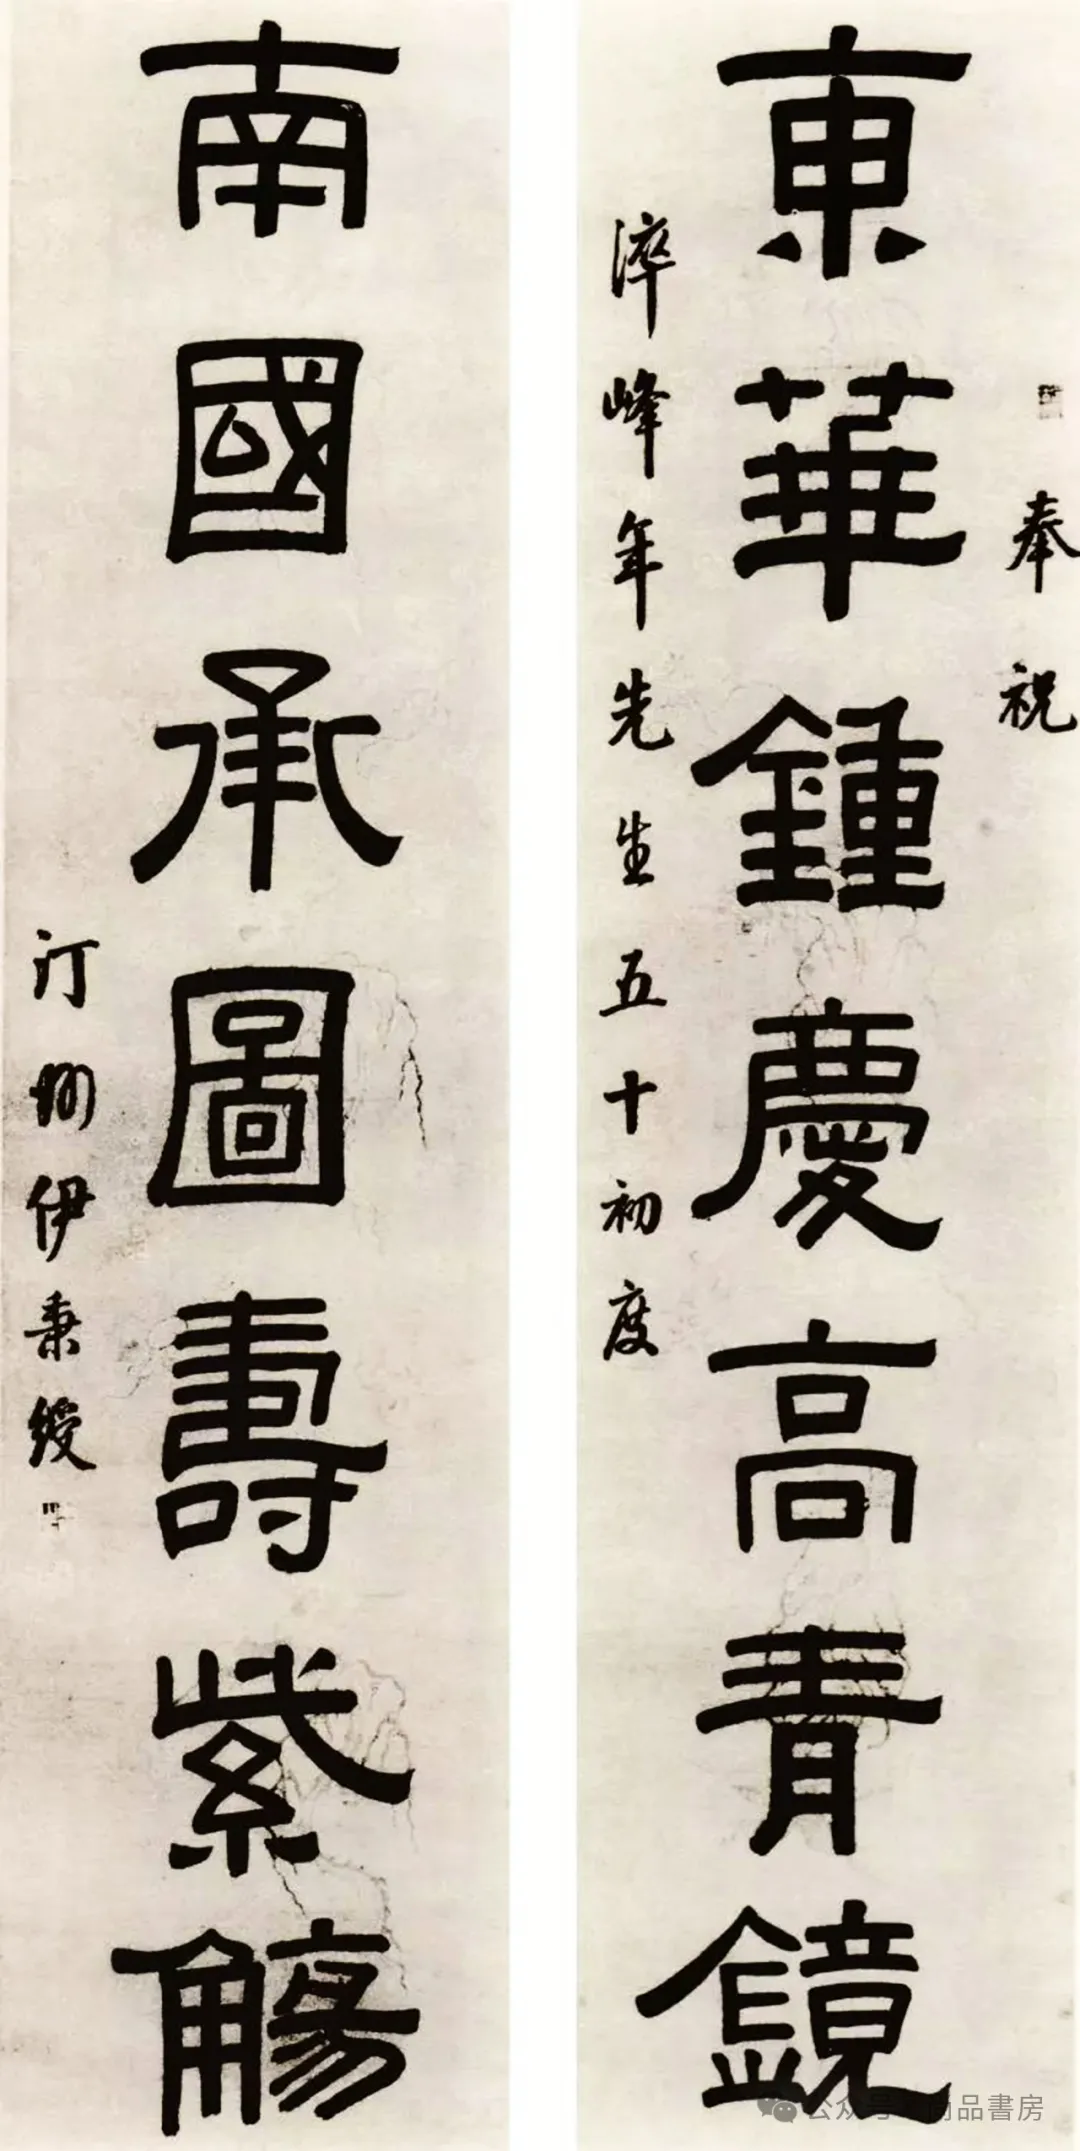 奉祝
東華鍾慶高青鏡
淬峰年先生五十初度
南國承圖壽紫觴
汀州伊秉綬
公众号 尚品書房